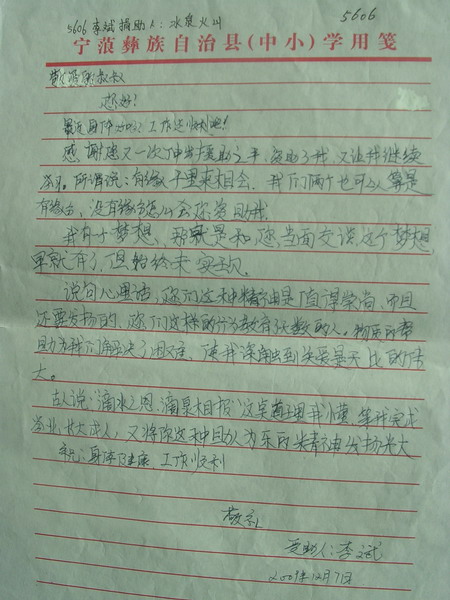 5606 李斌 捐助人:冰度火川
5606
宁蒗彝族自治县(中小)学用笺
叔叔
您好!
最近身体如何?工作还顺利吧!
感谢您又一次伸出援助之手,资助了我,又让我继续
学习。所谓说:有缘千里来相会,我们两个也可以算是
有缘分,没有缘分怎么会您资助我。
我有个梦想,那就是和您当面交谈,这个梦想
早就有了,但始终未实现。
说句心里话,您们这种精神是值得崇尚,而且
还要发扬的,您们这样的行为教育了无数的人。物质的帮
助为我们解决了困难,使我深触到关爱是无比的伟
大。
古人说"滴水之恩,涌泉相报"这句道理我懂,等我完成
学业,长大成人,又将您这种助人为乐的精神发扬光大
祝:身体健康 工作顺利
敬礼
受助人:李斌
2009年12月7日